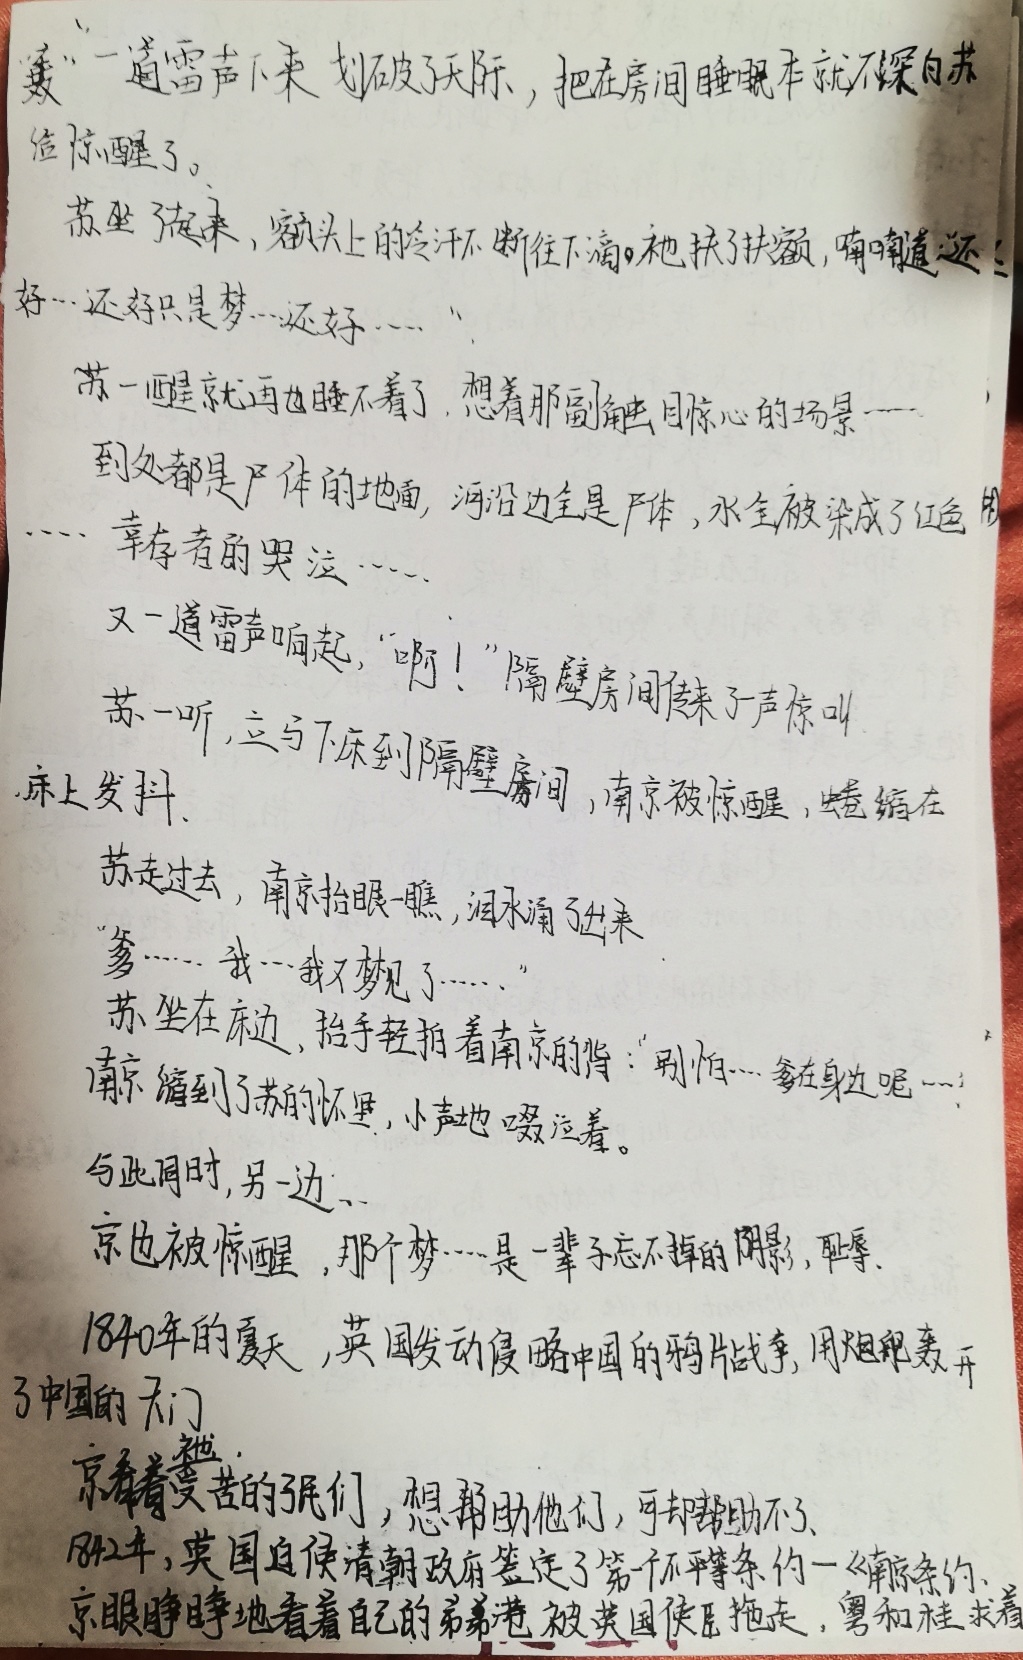 轰”一道雷声下来 划破了天际，把在房间睡眠本就不深的苏
惊醒了。
苏坐了起来，额头上的冷汗不断往下滴。祂扶了扶额，喃喃道：“还
好…还好只是梦……还好……”
苏一醒就再也睡不着了，想着那副触目惊心的场景……
到处都是尸体的地面，河沿边全是尸体，水全被染成了红色
……幸存者的哭泣……
又一道雷声响起，“啊！”隔壁房间传来了一声惊叫
苏一听，立马下床到隔壁房间，南京被惊醒，蜷缩在
床上发抖.
苏走过去，南京抬眼一瞧，泪水涌了出来
“爹……我…我又梦见了……”
苏坐在床边，抬手轻拍着南京的背：“别怕…爹在身边呢……
南京缩到了苏的怀里，小声地啜泣着。
与此同时，另一边…
京也被惊醒，那个梦……是一辈子忘不掉的阴影，耻辱.
1840年的夏天，英国发动侵略中国的鸦片战争，用炮轰开
了中国的大门
京看着祂受苦的子民们，想帮助他们，可却帮助不了、
1842年，英国迫使清朝政府签定了第一个不平等条约—《南京条约、
京眼睁睁地看着自己的弟弟港被英国使臣拖走，粤和桂求着